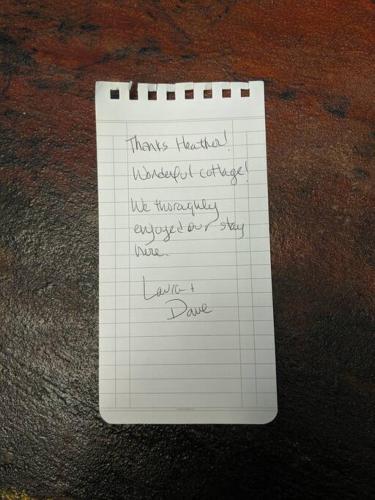 Thanks Heather!
Wonderful cottage!
We thoroughly
enjoyed our stay
here.
Laura +
Dave